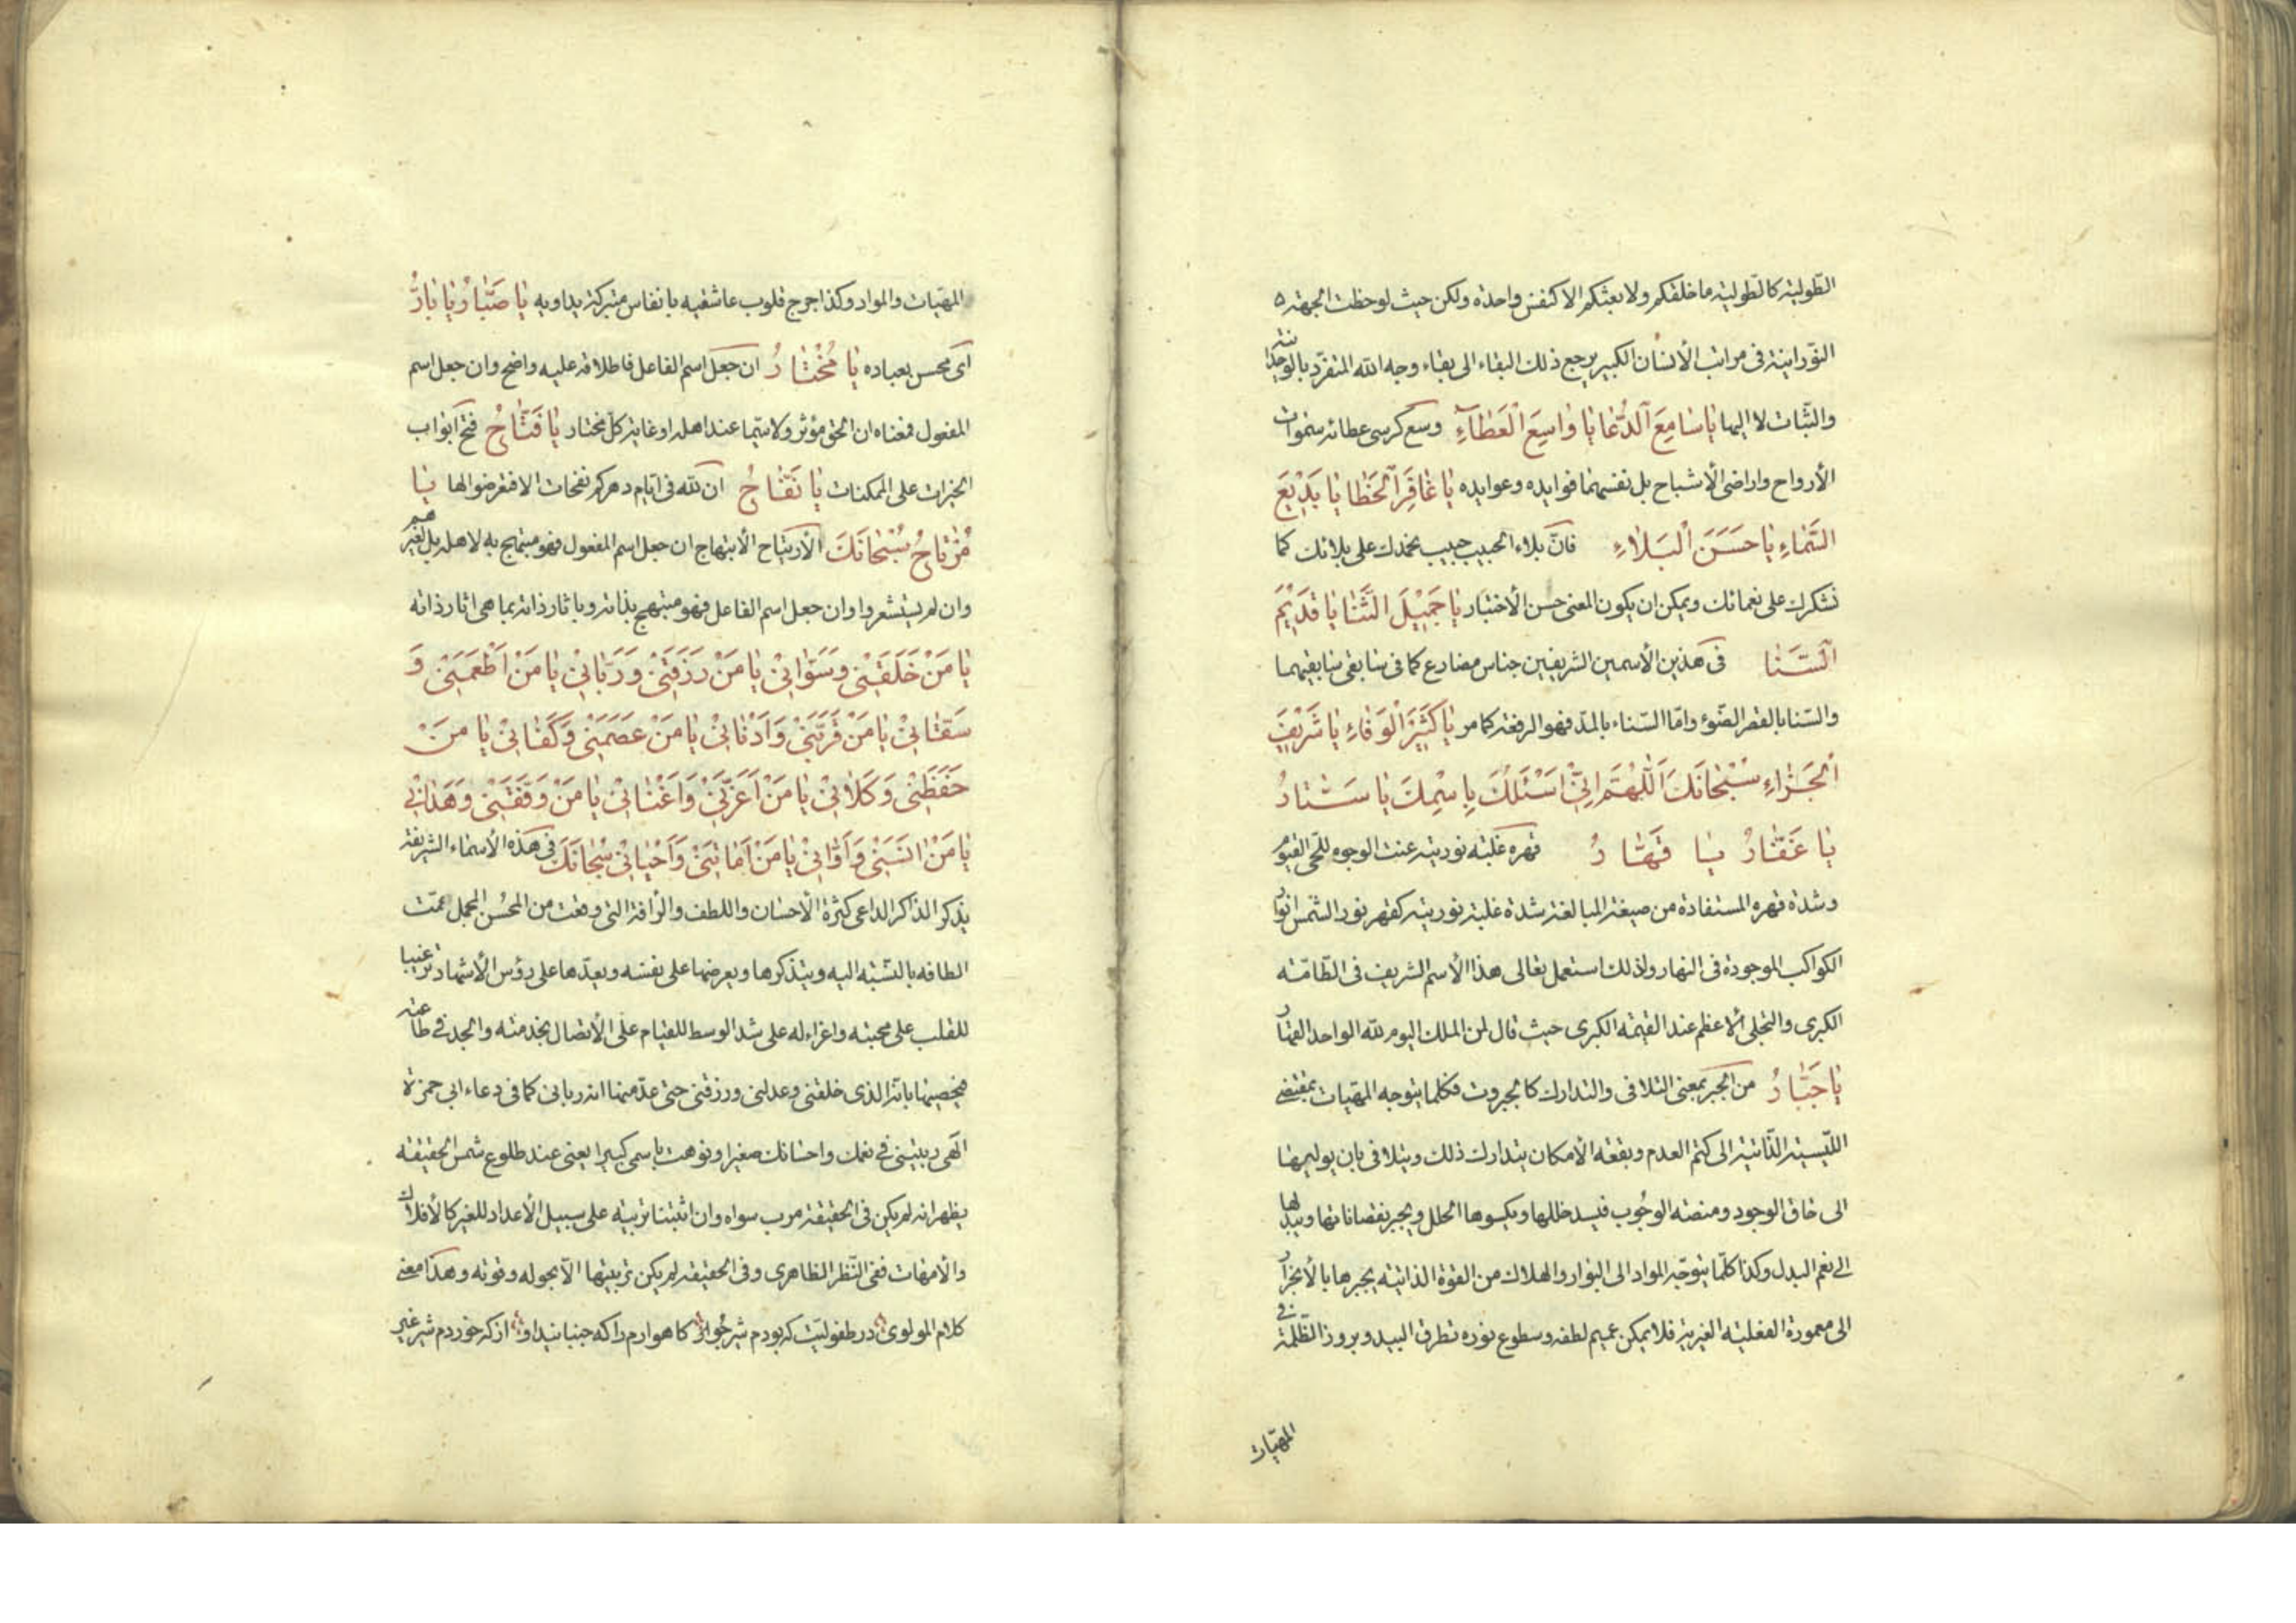 الطولية كالطولية ما خلقكم ولا بعثكم الا كنفس واحدة ولكن حيث لوحظت الجهة ه
النورانية فى مراتب الأنسان الكبير يرجع ذلك البقاء الى بقاء وجه الله المتفرد بالوحدانية
والثبات لا اليها يٰا سٰامِعَ الدُّعٰا يٰا وٰاسِعَ الْعَطٰآءِ وسع كرسى عطائه سموات
الأرواح واراضى الأشباح بل نفسهما فوايده وعوايده يٰا غٰافِرَ الْخَطٰا يٰا بَدِيْعَ
السَّمٰاءِ يٰا حَسَنَ الْبَلاٰءِ فانّ بلاء الحبيب حبيب نحمدك على بلائك كما
نشكرك على نعمائك ويمكن ان يكون المعنى حسن الأختبار يٰا جَمِيْلَ الثَّنٰا يٰا قَدِيْمَ
السَّنٰا فى هذين الأسمين الشريفين جناس مضارع كما فى سابقى سابقيهما
والسنا بالقصر الضوء واما السناء بالمد فهو الرفعة كما مر يٰا كَثِيْرَ الْوَفٰاءِ يٰا شَرِيْفَ
الْجَزٰاءِ سُبْحٰانَكَ اَللّٰهُمَّ اِنِّىْ اَسْئَلُكَ بِاسْمِكَ يٰا سَتّٰارُ
يٰا غَفّٰارُ يٰا قَهّٰارُ قهره غلبة نوريته عنت الوجوه للحى القيوم
وشدة قهره المستفادة من صيغة المبالغة شدة غلبة نوريته كقهر نور الشمس انوار
الكواكب الموجودة فى النهار ولذلك استعمل تعالى هذا الأسم الشريف فى الطامة
الكبرى والتجلى الأعظم عند القيمة الكبرى حيث قال لمن الملك اليوم لله الواحد القهار
يٰا جَبّٰارُ من الجبر بمعنى التلافى والتدارك كالجبروت فكلما يتوجه المهيات بمقتضى
الليسية الذاتية الى كتم العدم وبقعة الأمكان يتدارك ذلك ويتلافى بان يوليها
الى خاق الوجود ومنصة الوجوب فيسد خللها ويكسوها الحلل ويجبر نقصاناتها ويبدلها
الى نعم البدل وكذا كلما يتوجه المواد الى البوار والهلاك من القوة الذاتية يجبرها بالأنجرار
الى معمورة الفعلية الغيرية فلا يمكن عميم لطفه وسطوع نوره تطرق البيد وبروز الظلمة فى
المهيات
المهيات والمواد وكذا جرح قلوب عاشقيه بانفاس متبركة يداويه يٰا صَبّٰارُ يٰا بٰارُّ
اى محسن بعباده يٰا مُخْتٰارُ ان جعل اسم الفاعل فاطلاقه عليه واضح وان جعل اسم
المفعول فمعناه ان الحق مؤثر ولا سيما عند اهله او غاية كل مختار يٰا فَتّٰاحُ فتح ابواب
الخيرات على الممكنات يٰا نَفّٰاحُ ان لله فى ايام دهركم نفحات الا فتعرضوا لها يٰا
مُرْتٰاحُ سُبْحٰانَكَ الأرتياح الأبتهاج ان جعل اسم المفعول فهو مبتهج به لاهله بل لغيرهم
وان لم يستشعروا وان جعل اسم الفاعل فهو مبتهج بذاته وباثار ذاته بما هى اثار ذاته
يٰا مَنْ خَلَقَنِىْ وَسَوّٰانِىْ يٰا مَنْ رَزَقَنِىْ وَرَبّٰانِىْ يٰا مَنْ اَطْعَمَنِىْ وَ
سَقٰانِىْ يٰا مَنْ قَرَّبَنِىْ وَاَدْنٰانِىْ يٰا مَنْ عَصَمَنِىْ وَكَفٰانِىْ يٰا مَنْ
حَفَظَنِىْ وَكَلاٰنِىْ يٰا مَنْ اَعَزَّنِىْ وَاَغْنٰانِىْ يٰا مَنْ وَفَّقَنِىْ وَهَدٰانِىْ
يٰا مَنْ اٰنَسَنِىْ وَاٰوٰانِىْ يٰا مَنْ اَمٰاتَنِىْ وَاَحْيٰانِىْ سُبْحٰانَكَ فى هذه الأسماء الشريفة
يذكر الذاكر الداعى كثرة الأحسان واللطف والرأفة التى وقعت من المحسن المجمل عمت
الطافه بالنسبة اليه ويتذكرها ويعرضها على نفسه ويعدها على رؤس الأشهاد ترغيبا
للقلب على محبته واغراء له على شد الوسط للقيام على الأتصال بخدمته والجد فى طاعته
فيحصيها بانه الذى خلقنى وعدلنى ورزقنى حتى عد منها انه ربانى كما فى دعاء ابى حمزة
الهى ربيتنى فى نعمك واحسانك صغيرا ونوهت باسمى كبيرا يعنى عند طلوع شمس الحقيقة
يظهر انه لم يكن فى الحقيقة مرب سواه وان اثبتنا تربية على سبيل الأعداد للغير كالأفلاك
والأمهات ففى النظر الظاهرى وفى الحقيقة لم يكن تربيتها الا بحوله وقوته وهذا معنى
كلام المولوى در طفوليت كه بودم شير خوار كاهوارم را كه جنبانيد او از كه خوردم شير غير